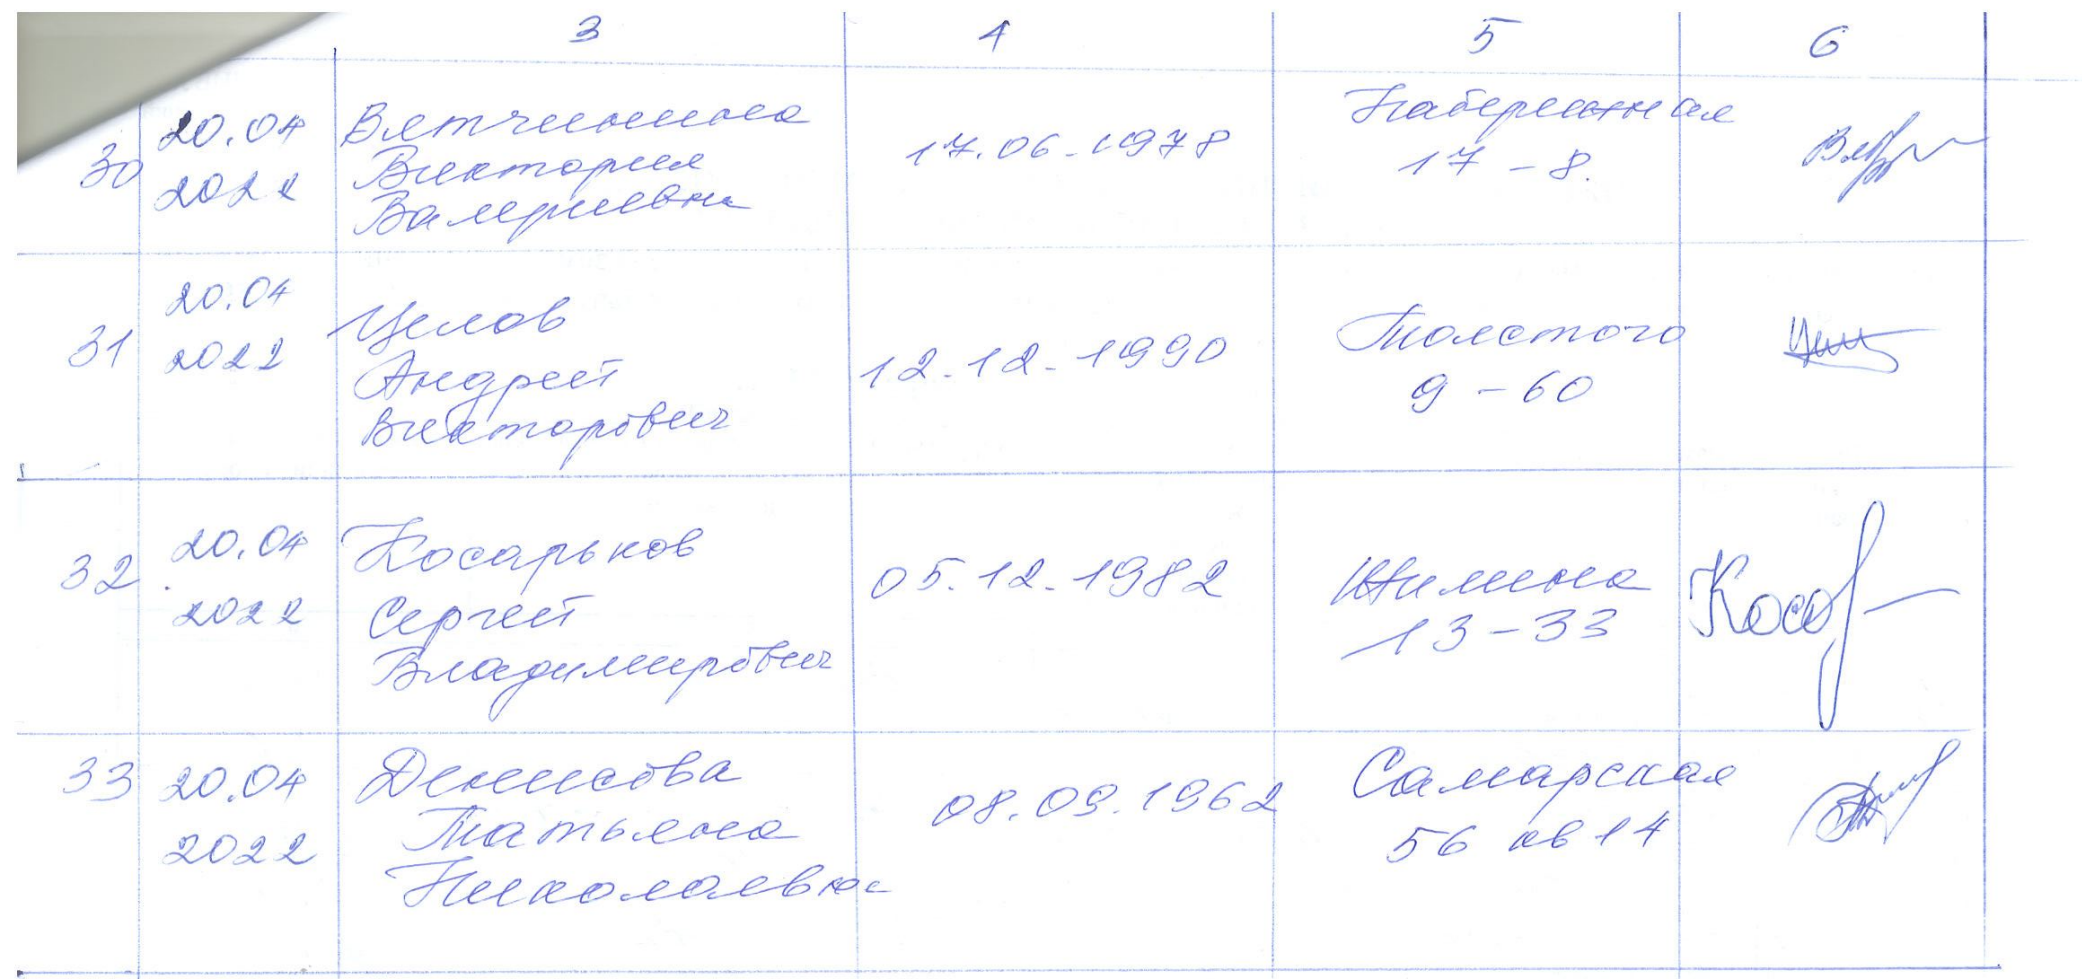 3 4 5 6
30 20.04 2022 Вятчинина Виктория Валериевна 17.06.1978 Набережная 17-8.
31 20.04 2022 Целов Андрей Викторович 12.12.1990 Толстого 9-60
32 20.04 2022 Косарьков Сергей Владимирович 05.12.1982 13-33 Косар
33 20.04 2022 Денисова Татьяна Николаевна 08.09.1962 Самарская 56 кв 14